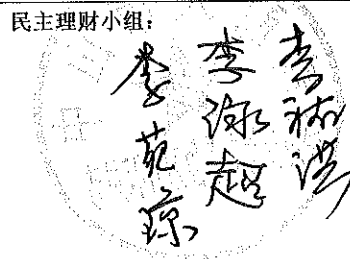 民主理财小组：
李苑琼
李泳超
李祐洪